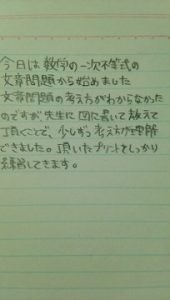 今日は数学の一次不等式の
文章問題から始めました
文章問題の考え方がわからなかった
のですが先生に図に書いて教えて
頂くことで、少しずつ考え方が理解
できました。頂いたプリントをしっかり
練習してきます。